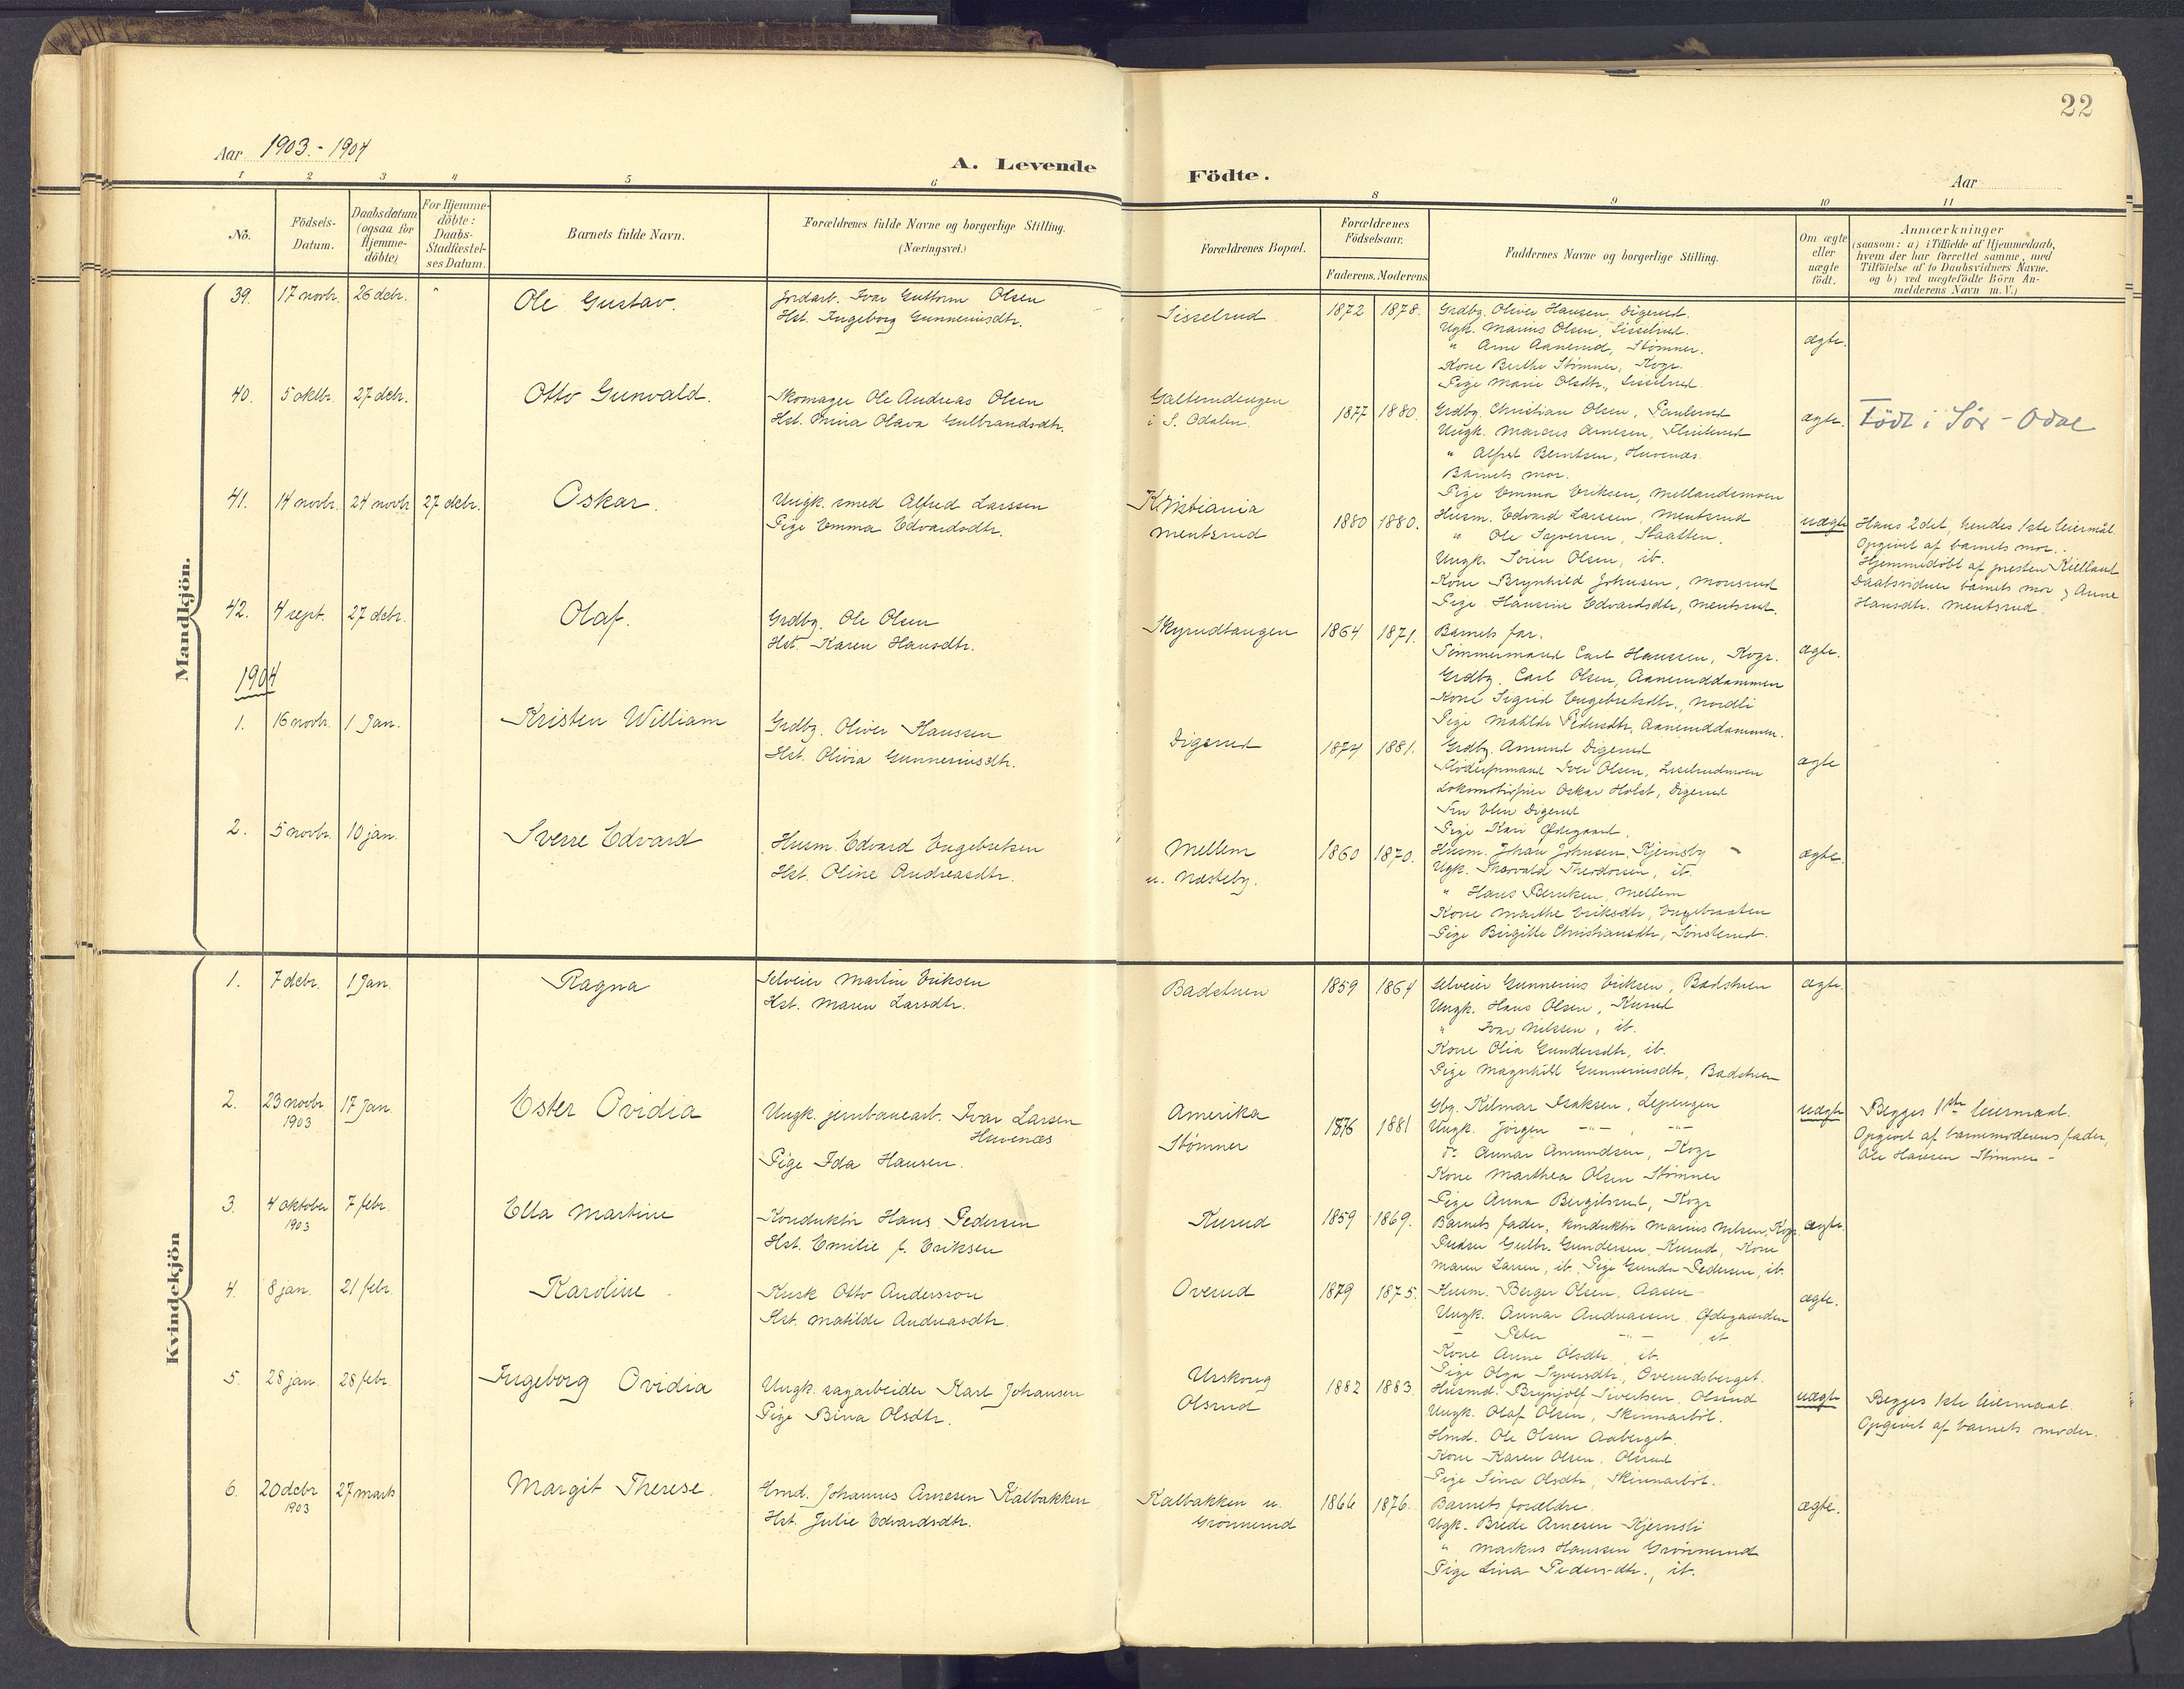 22
Aar 1903.-1904
A. Levende Födte.
Aar
1 2 3 4 5 6 8 9 10 11
No.
Födsels-Datum.
Daabsdatum (ogsaa for Hjemme-döbte)
For Hjemme-döbte: Daabs-Stadfæstel-ses Datum.
Barnets fulde Navn.
Forældrenes fulde Navne og borgerlige Stilling. (Næringsvei.)
Forældrenes Bopæl.
Forældrenes Födselsaar.
Faderens. Moderens
Faddernes Navne og borgerlige Stilling.
Om ægte eller uægte födt.
Anmærkninger
(saasom: a) i Tilfælde af Hjemmedaab,
hvem der har forrettet samme, med
Tilföielse af to Daabsvidners Navne.
og b) ved uægtefödte Börn An-
melderens Navn m.V.)
Mandkjön.
39. 17 novbr. 26 debr. "
Ole Gustav.
Jordarb. Ivar Guttorm Olsen
Hst. Ingeborg Gunneriusdtr.
Sisselrud
1872 1878.
Grdbr. Oliver Hansen, Digerud.
Ugk. Marius Olsen, Sisselrud.
" Arne Aanerud, Stømner.
Kone Berthe Stømner, Kogr.
Pige Marie Olsdtr., Sisselrud.
ægte.
40. 5 oktbr. 27 debr.
Otto Gunvald.
Skomager Ole Andreas Olsen
Hst. Mina Olava Gulbrandsdtr.
Galterudengen
i S. Odalen.
1877 1880
Grdbr. Christian Olsen, Paulerud
Ungk. Marius Arnesen,
" Alfred Berntsen, Huvenæs.
Barnets mor.
Pige Emma Eriksen, Mellandsmoen
ægte.
Född i Sør-Odal
41. 14 novbr. 24 novbr 27 debr.
Oskar.
Ungk. smed Alfred Larssen
Pige Emma Edvardsdtr.
Kristiania
Mentsrud
1880 1880.
Husm. Edvard Larssen, Mentsrud
" Ole Syversen, Slaatten.
Ungk. Søren Olsen, ib.
Kone Brynhild Johnsen, Monsrud
Pige Hansine Edvardsdtr, Mentsrud.
uægte
Hans 2det, hendes 1ste leiermål.
Opgivet af barnets mor.
Hjemmedöbt af presten Kielland
Daabsvidner barnets mor & Anne
Hansdtr. Mentsrud.
42. 4 sept. 27 debr.
Olaf.
Grdbr. Ole Olsen
Hst. Karen Hansdtr.
Skyrudtangen
1864 1871.
Barnets far.
Tömmermand Carl Hanssen, Kogr.
Grdbr. Carl Olsen, Aaneruddammen
Kone Sigrid Engebretsdtr., Nordli
Pige Mathilde Pedersdtr, Aaneruddammen.
ægte.
1904
1. 16 novbr. 1 Jan.
Kristen William
Grdbr. Oliver Hanssen
Hst. Olivia Gunneriusdtr.
Digerud
1874 1881.
Grdbr. Amund Digerud
Iver Olsen, Sisselrudmoen
Lokomotivfører Oskar Holst, Digerud
Fru Elen Digerud
Pige Kari Ødegaard.
ægte
2. 5 novbr. 10 jan.
Sverre Edvard
Husm. Edvard Engebretsen
Hst. Oline Andreasdtr.
Mellem
u. Næsteby.
1860 1870.
Husm. Johan Johnsen, Kjernsby
Ugk. Thorvald Theodorsen, ib.
" Hans Berntsen, Mellem
Kone Marthe Eriksdtr, Engebraaten
Pige Birgitte Christiansdtr, Sønsterud.
ægte.
Kvindekjön
1. 7 debr. 1 Jan.
Ragna
Selveier Martin Eriksen
Hst. Maren Larsdtr.
Badstuen
1859 1864
Selveier Gunnerius Eriksen, Badstuen
Ungk. Hans Olsen, Kurud
" Ivar Nilssen, ib.
Kone Olia Gundersdtr, ib.
Pige Magnhild Gunneriusdtr, Badstuen
ægte.
2. 23 novbr 1903 17 Jan.
Ester Ovidia
Ungk. jernbanearb. Ivar Larsen
Huvenæs
Pige Ida Hansen.
Amerika
Stømner
1876 1881
Gbr. Hilmar Isaksen, Lejrengen
Ungk. Jörgen -"- , -"-
do Annar Amundsen, Kogr
Kone Marthea Olsen Stømner
Pige Anna Bergitsrud, Kogr
uægte
Begges 1ste leiermaal.
Opgivet af barnemoderens fader,
Ole Hansen Stömner -
3. 4 oktober 1903 7 febr.
Ella Martine
Konduktör Hans Pedersen
Hst. Emilie f. Eriksen
Kurud
1859 1869.
Barnets fader, konduktör Marius Nilsen, Kogr.
Gulbr. Gundersen, Kurud, Kone
Maren Larsen, ib. Pige Gunda Pedersen, ib.
ægte.
4. 8 jan. 21 febr.
Karoline
Kusk Otto Andersson
Hst. Matilde Andreasdtr.
Overud
1879 1875.
Husm. Berger Olsen, Aasen
Ungk. Annar Andreassen Ødegaarden
- Peter -"- ib
Kone Anne Olsdtr., ib.
Pige Olga Syversdtr, Overudsberget.
ægte.
5. 28 jan. 28 febr.
Ingeborg Ovidia
Ungk. sagarbeider Karl Johansen
Pige Bina Olsdtr.
Urskoug
Olsrud
1882 1883.
Husmd. Brynjolf Sivertsen, Olsrud
Ungk. Olaf Olsen, Skinnarböl.
Hmd. Ole Olsen Aaberget.
Kone Karen Olsen, Olsrud
Pige Lina Olsdtr, Skinnarböl.
uægte
Begges 1ste leiermaal.
Opgivet af barnets moder.
6. 20 debr 1903 27 mars
Margit Therese.
Hmd. Johannes Arnesen Kalbakken
Hst. Julie Edvardsdtr.
Kalbakken u.
Grönnerud
1866 1876.
Barnets forældre.
Ugk. Brede Arnesen Kjernsli
" Markus Hanssen Grönnerud
Pige Lina Pedersdtr., ib.
ægte.